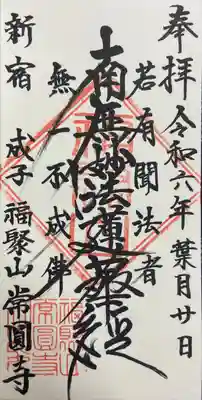 奉拝 令和六年 葉月廿日
若有聞法者
南無妙法蓮華経
無一不成佛
新宿 成子 福聚山 常圓寺
福聚山
常圓寺